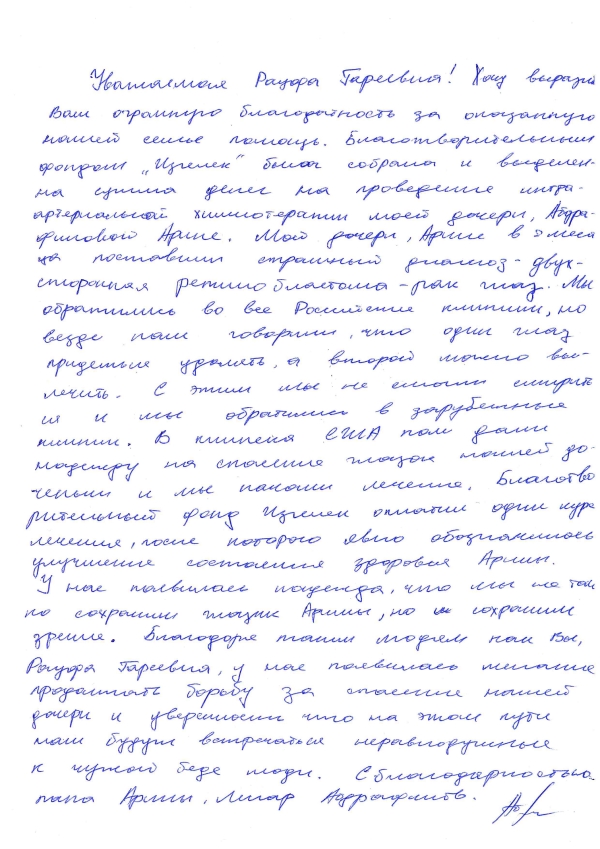 Уважаемая Рауфа Гареевна! Хочу выразить
Вам огромную благодарность за оказанную
нашей семье помощь. Благотворительным
фондом „Изгелек" была собрана и выделен-
на сумма денег на проведение интра-
артериальной химиотерапии моей дочери, Абдра-
фиковой Арине. Моей дочери, Арине в 2 меся
ца поставили страшный диагноз - двух-
сторонняя ретинобластома - рак глаз. Мы
обратились во все Российские клиники, но
везде нам говорили, что один глаз
придеться удалять, а второй можно вы-
лечить. С этим мы не смогли смирить
ся и мы обратились в зарубежные
клиники. В клинике США нам дали
надежду на спасение глазок нашей до-
ченьки и мы начали лечение. Благотво
рительный фонд Изгелек оплатил один курс
лечения, после которого явно обозначилось
улучшение состояние здоровья Арины.
У нас появилась надежда, что мы не толь
ко сохраним глазик Арины, но и сохраним
зрение. Благодаря таким людям как Вы,
Рауфа Гареевна, у нас появилась желание
продолжать борьбу за спасение нашей
дочери и уверенность что на этом пути
нам будут встречаться неравнодушные
к чужой беде люди. С благодарностью
папа Арины, Ленар